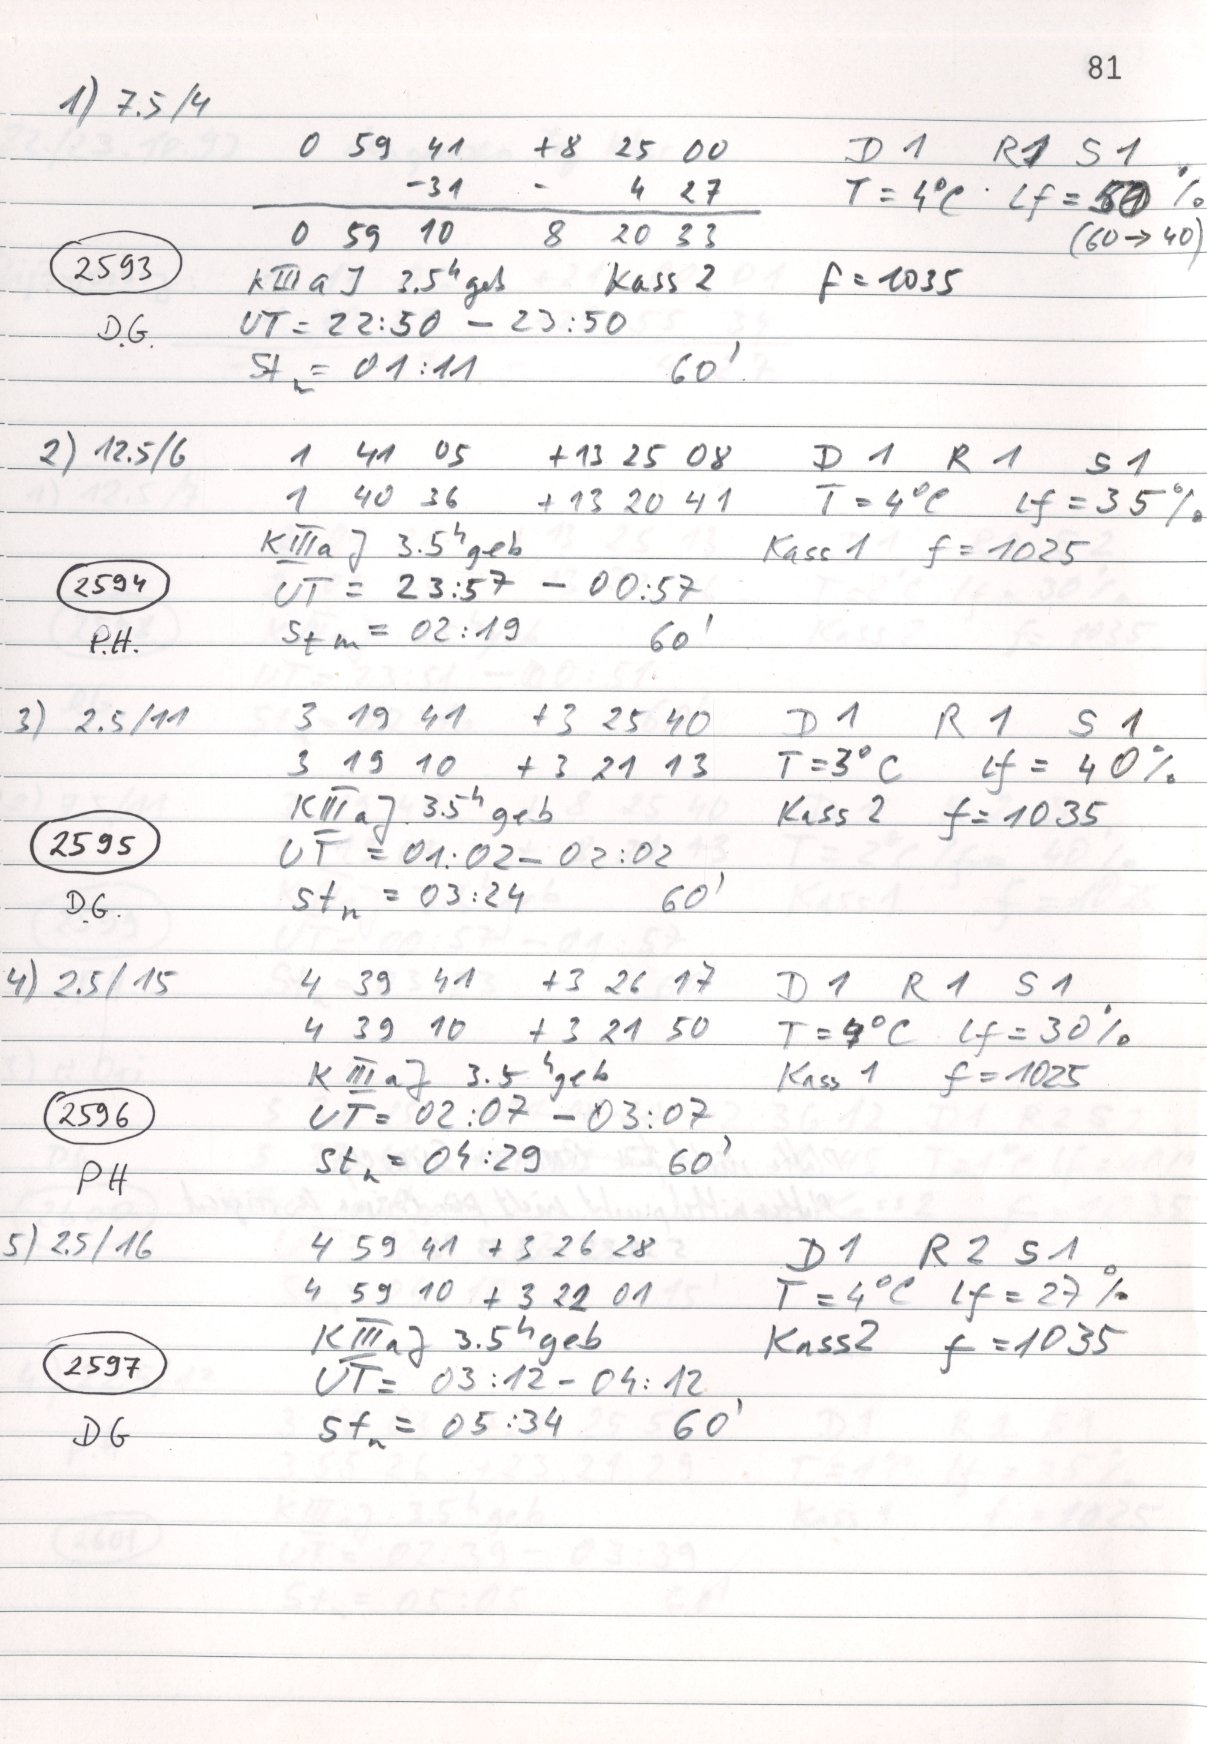 81
1) 7.5/4
0 59 41 +8 25 00 D1 R1 S1
-31 - 4 27 T = 4°C Lf = 50 %
0 59 10 8 20 33 (60→40)
2593 KIIIaJ 3.5ʰgeb Kass 2 f = 1035
D.G. UT = 22:50 - 23:50
Stₙ = 01:11 60'
2) 12.5/6 1 41 05 +13 25 08 D1 R1 S1
1 40 36 +13 20 41 T = 4°C Lf = 35%
KIIIaJ 3.5ʰgeb Kass 1 f = 1025
2594 UT = 23:57 - 00:57
P.H. Stm = 02:19 60'
3) 2.5/11 3 19 41 +3 25 40 D1 R1 S1
3 19 10 +3 21 13 T = 3°C Lf = 40%
KIIIaJ 3.5ʰgeb Kass 2 f = 1035
2595 UT = 01:02 - 02:02
D.G. Stₙ = 03:24 60'
4) 2.5/15 4 39 41 +3 26 17 D1 R1 S1
4 39 10 +3 21 50 T = 4°C Lf = 30%
KIIIaJ 3.5ʰgeb Kass 1 f = 1025
2596 UT = 02:07 - 03:07
PH Stₙ = 04:29 60'
5) 2.5/16 4 59 41 +3 26 28 D1 R2 S1
4 59 10 +3 22 01 T = 4°C Lf = 27%
KIIIaJ 3.5ʰgeb Kass 2 f = 1035
2597 UT = 03:12 - 04:12
DG Stₙ = 05:34 60'